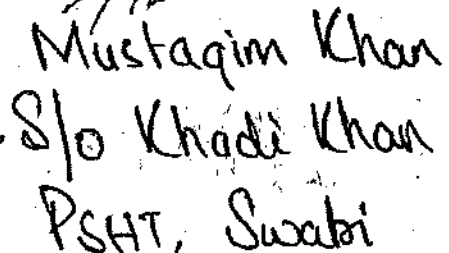 Mustaqim Khan
S/o Khadi Khan
PSHT, Swabi